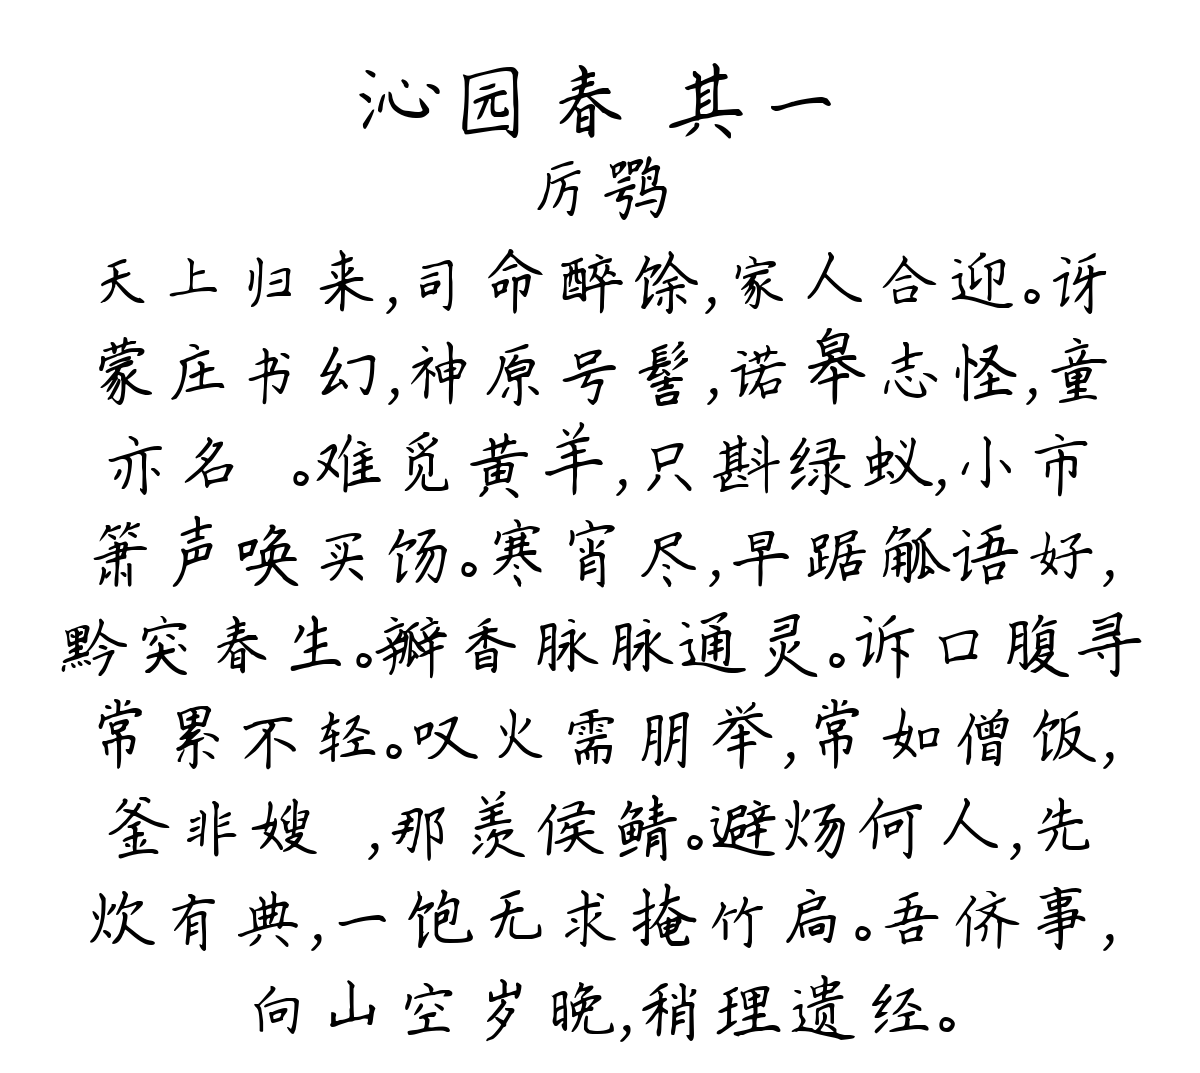 沁园春 其一
厉鹗
天上归来,司命醉馀,家人合迎。讶
蒙庄书幻,神原号髻,诺皋志怪,童
亦名 。难觅黄羊,只斟绿蚁,小市
箫声唤买饧。寒宵尽,早踞觚语好,
黔突春生。瓣香脉脉通灵。诉口腹寻
常累不轻。叹火需朋举,常如僧饭,
釜非嫂 ,那羡侯鲭。避炀何人,先
炊有典,一饱无求掩竹扃。吾侪事,
向山空岁晚,稍理遗经。